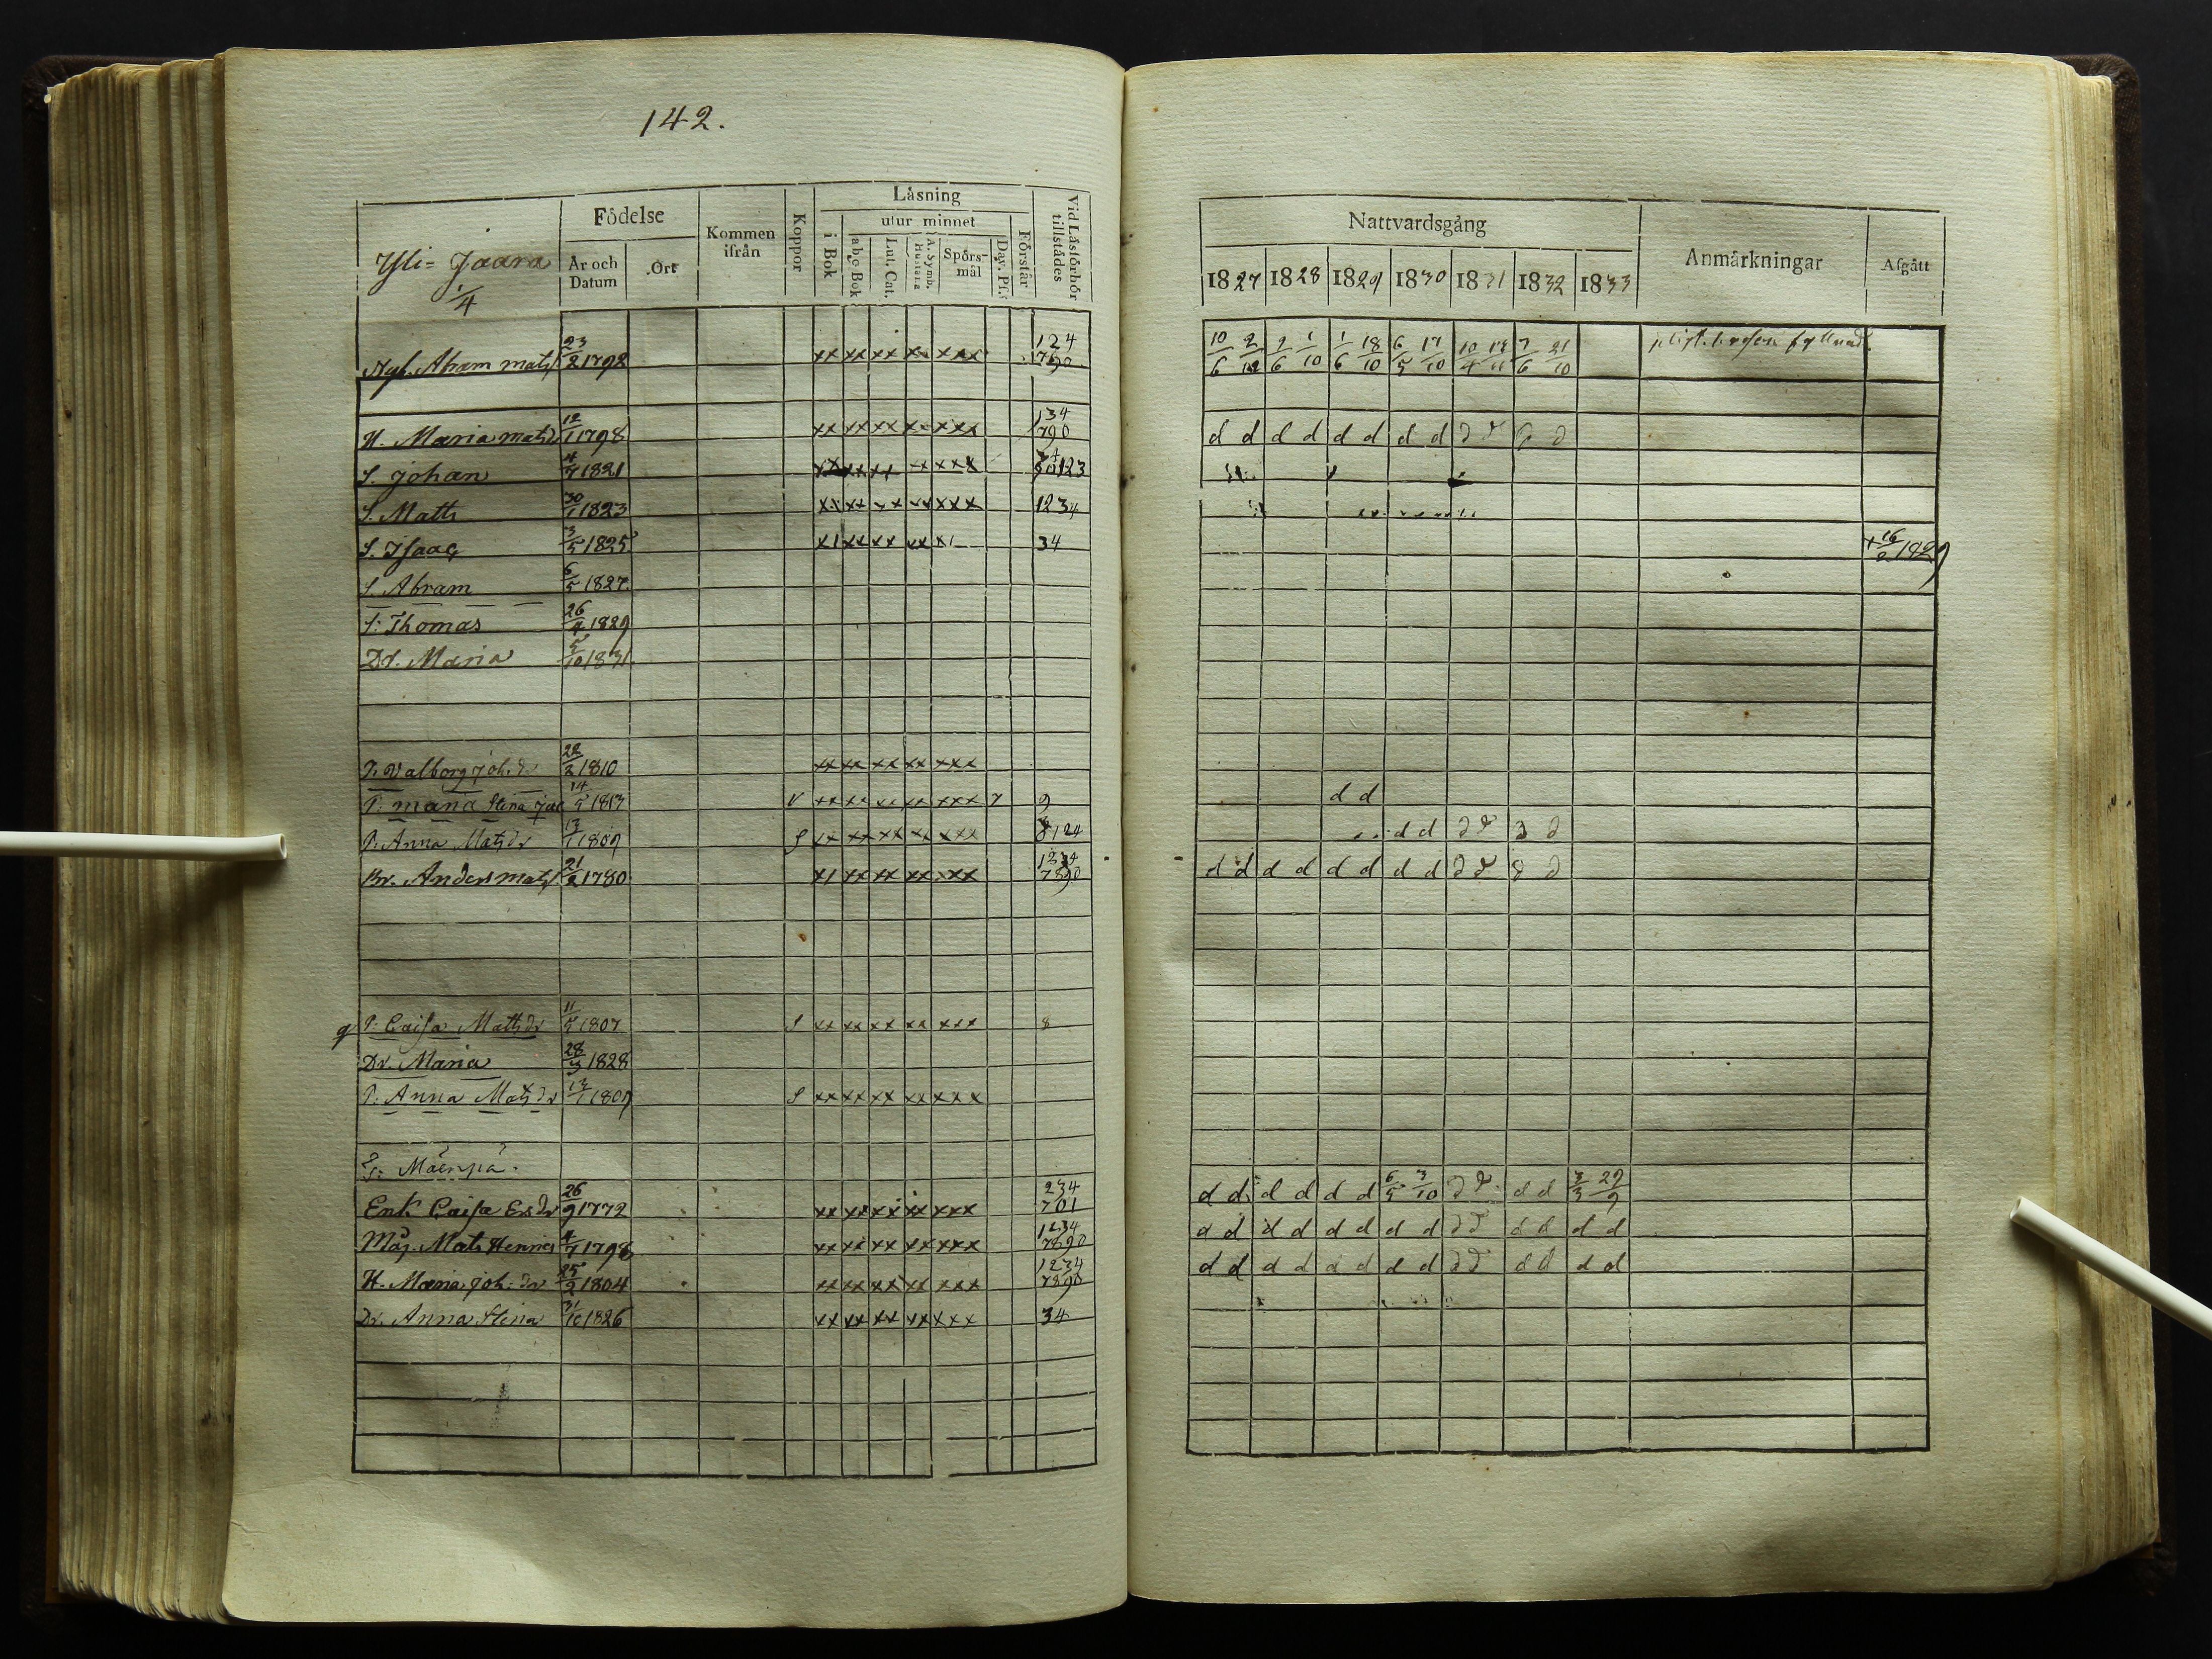 142.
Läsning
Vid Läsförhör tillstädes
Födelse
Kommen ifrån
Koppor
utur minnet
Förstår
Yli= Jaara
1/4
År och Datum
Ort
i Bok
abc-Bok
Lut. Cat.
A. Symb. Hustafla
Spörs-mål
Dav. Ps.
Nyb. Abram mats 23/2 1792 xx xx xx x xxx 124 790
H. Maria matsdr 12/1 1798 xx xx xx x xxx 134 790
S. Johan 4/7 1821 xx xx xx xxx 123
S. Matts 30/1 1823 xx xx xx xxx 1234
S. Isaac 3/5 1825 x1 xx xx xx x1 34
S. Abram 6/5 1827.
S: Thomas 26/4 1829
Dr. Maria 5/10 1831.
P. Valborg joh.dr 22/2 1810 xx xx xx xx xxx
P. maria Stina 14/5 1813 V xx xx xx xx xxx 7 9
P. Anna Matsdr 13/1 1809 S xx xx xx xx xxx 8124
Br. Anders mats 21/2 1780 x1 xx xx xx xxx 1234 7890
P. Caisa Mattsdr 11/5 1807 S xx xx xx xx xxx 8
Dr. Maria 28/3 1828
P. Anna Matsdr 13/1 1809 S xx xx xx xx xxx
Mäenpä.
Enk. Caisa Ersdr 26/9 1772 xx xx xx xx xxx 234 701
Måg. Mats Henrics 4/7 1798 xx xx xx xx xxx 1234 7890
H. Maria joh.dr 25/2 1804 xx xx xx xx xxx 1234 7890
Dr. Anna Stina 31/10 1826 xx xx xx xx xxx 34
Nattvardsgång
Anmärkningar
Afgått
1827 1828 1829 1830 1831 1832 1833
10/6 2/12 2/6 1/10 1/6 18/10 6/5 17/10 10/4 7/6 21/10
d d d d d d d d d d d d
+ 16/2 1829
d d
d d d d d d
d d d d d d d d d d d d
d d d d d d 6/5 3/10 d d d d 3/3 29/9
d d d d d d d d d d d d d d
d d d d d d d d d d d d d d